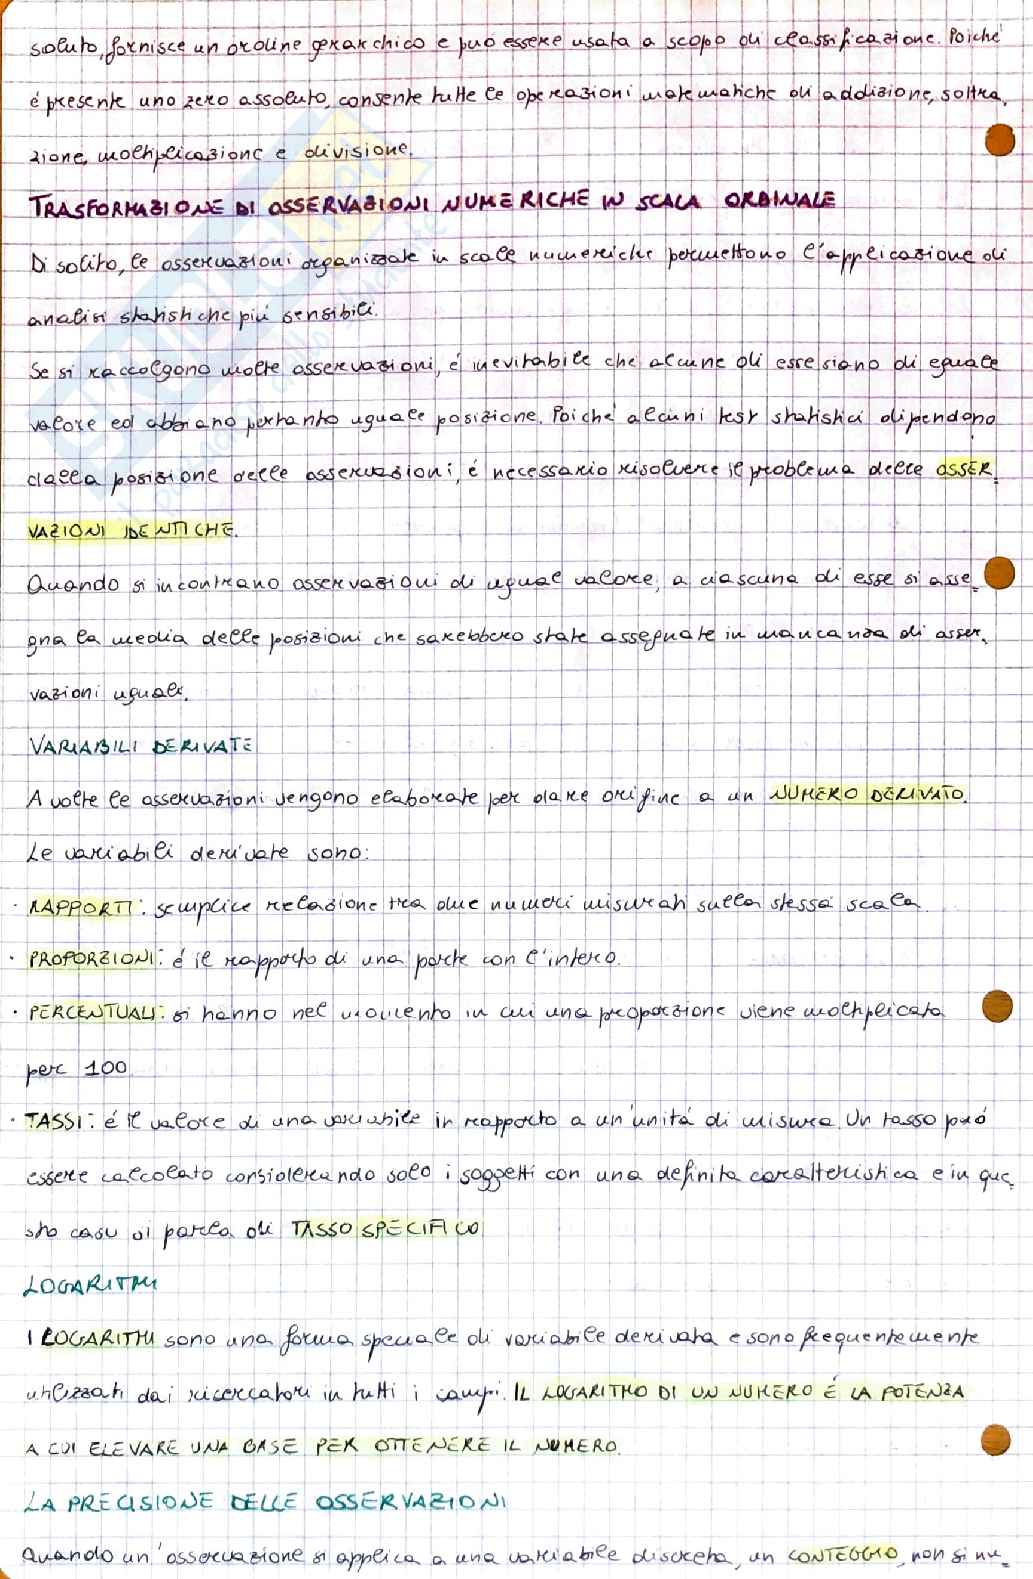 soluto, fornisce un ordine gerarchico e può essere usata a scopo di classificazione. Poiché
é presente uno zero assoluto, consente tutte le operazioni matematiche di addizione, sottra_
zione, moltiplicazione e divisione.
TRASFORMAZIONE DI OSSERVAZIONI NUMERICHE IN SCALA ORDINALE
Di solito, le osservazioni organizzate in scale numeriche permettono l'applicazione di
analisi statistiche più sensibili.
Se si raccolgono molte osservazioni, é inevitabile che alcune di esse siano di eguale
valore ed abbiano pertanto uguale posizione. Poiché alcuni test statistici dipendono
dalla posizione delle osservazioni, é necessario risolvere il problema delle OSSER_
VAZIONI IDENTICHE.
Quando si incontrano osservazioni di ugual valore, a ciascuna di esse si asse_
gna la media delle posizioni che sarebbero state assegnate in mancanza di osser_
vazioni uguali.
VARIABILI DERIVATE
A volte le osservazioni vengono elaborate per dare origine a un NUMERO DERIVATO.
Le variabili derivate sono:
· RAPPORTI: semplice relazione tra due numeri misurati sulla stessa scala.
· PROPORZIONI: é il rapporto di una parte con l'intero.
· PERCENTUALI: si hanno nel momento in cui una proporzione viene moltiplicata
per 100
· TASSI: é il valore di una variabile in rapporto a un'unità di misura. Un tasso può
essere calcolato considerando solo i soggetti con una definita caratteristica e in que_
sto caso si parla di TASSO SPECIFICO
LOGARITMI
I LOGARITMI sono una forma speciale di variabile derivata e sono frequentemente
utilizzati dai ricercatori in tutti i campi. IL LOGARITMO DI UN NUMERO É LA POTENZA
A CUI ELEVARE UNA BASE PER OTTENERE IL NUMERO.
LA PRECISIONE DELLE OSSERVAZIONI
Quando un'osservazione si applica a una variabile discreta, un CONTEGGIO, non si nu_